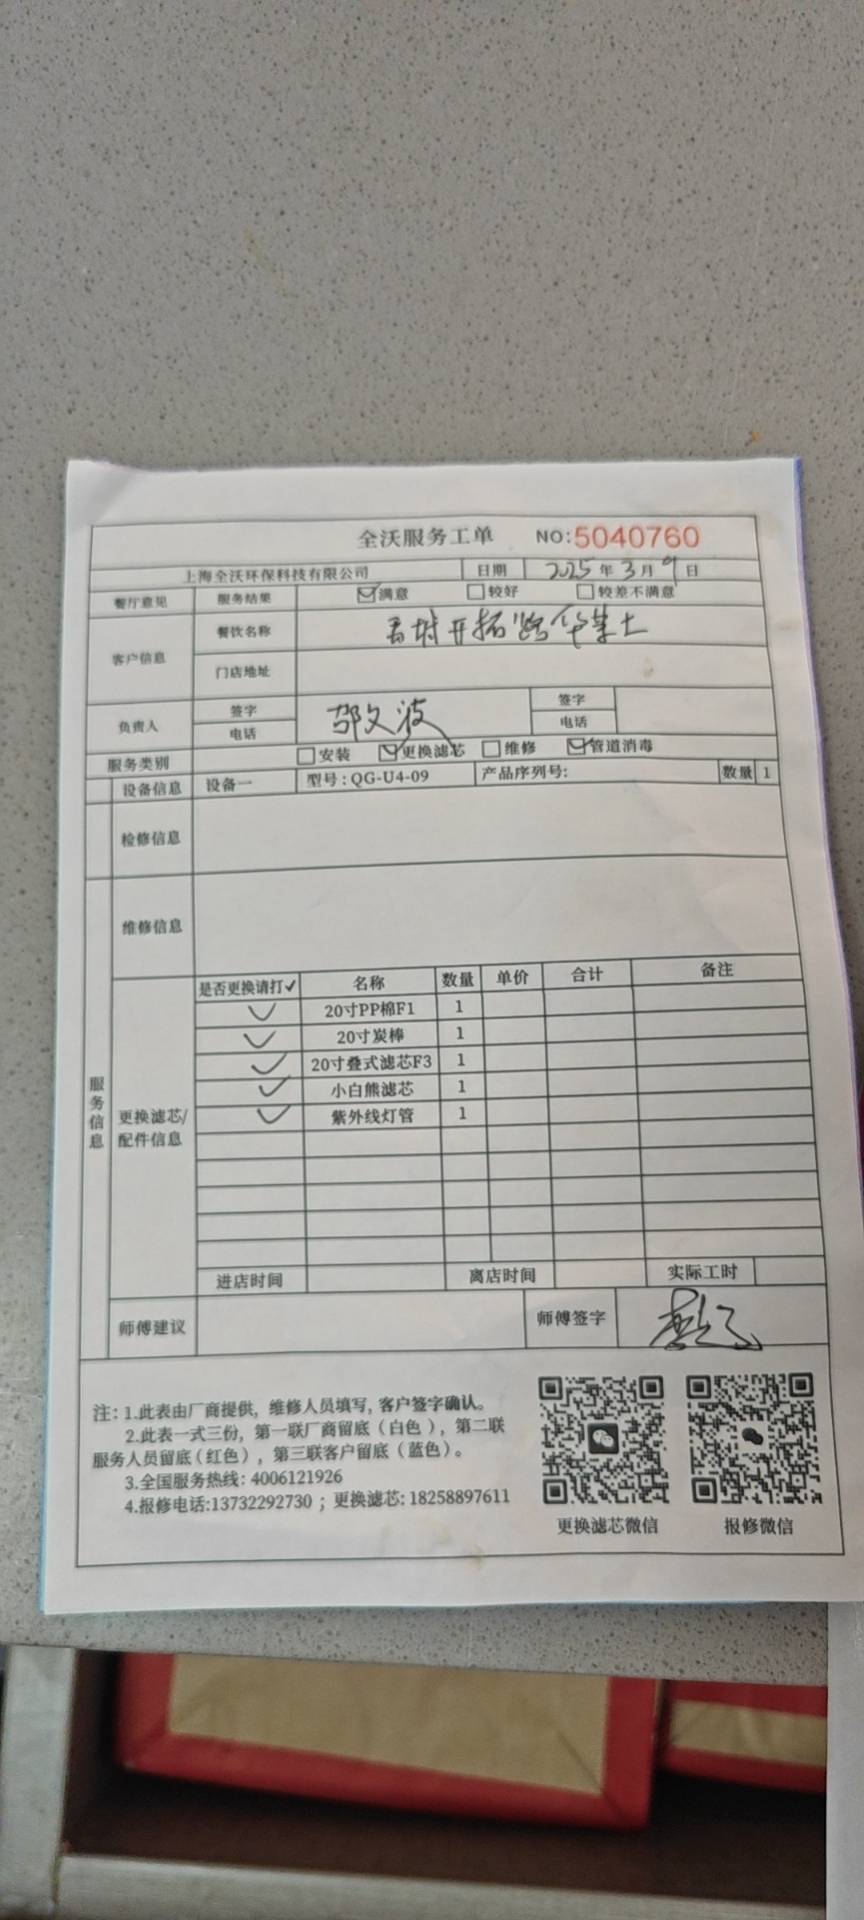 全沃服务工单 NO:5040760
上海全沃环保科技有限公司 日期 2025年3月9日
餐厅意见 服务结果 满意 较好 较差不满意
客户信息 餐饮名称 开拓路华莱士
门店地址
负责人 签字 电话 邵文波 签字 电话
服务类别 安装 更换滤芯 维修 管道消毒
设备信息 设备一 型号:QG-U4-09 产品序列号: 数量 1
检修信息
维修信息
服务信息
更换滤芯/配件信息
是否更换请打✓ 名称 数量 单价 合计 备注
✓ 20寸PP棉F1 1
✓ 20寸炭棒 1
✓ 20寸叠式滤芯F3 1
✓ 小白熊滤芯 1
✓ 紫外线灯管 1
进店时间 离店时间 实际工时
师傅建议 师傅签字
注:1.此表由厂商提供,维修人员填写,客户签字确认。
2.此表一式三份,第一联厂商留底(白色),第二联
服务人员留底(红色),第三联客户留底(蓝色)。
3.全国服务热线:4006121926
4.报修电话:13732292730;更换滤芯:18258897611
更换滤芯微信 报修微信